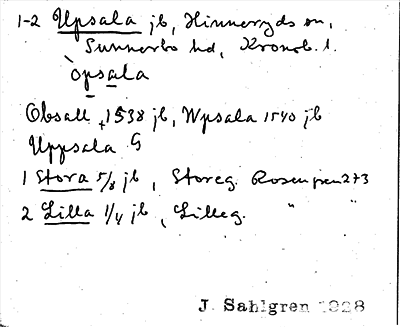 1-2 Upsala jb, Hinneryds sn,
Sunnerbo hd, Kronob. l.
òpsala
Obsall 1538 jb, Wpsala 1540 jb
Uppsala G
1 Stora 5/8 jb, Storeg. Rosengren 273
2 Lilla 1/4 jb, Lilleg. " "
J. Sahlgren 1928